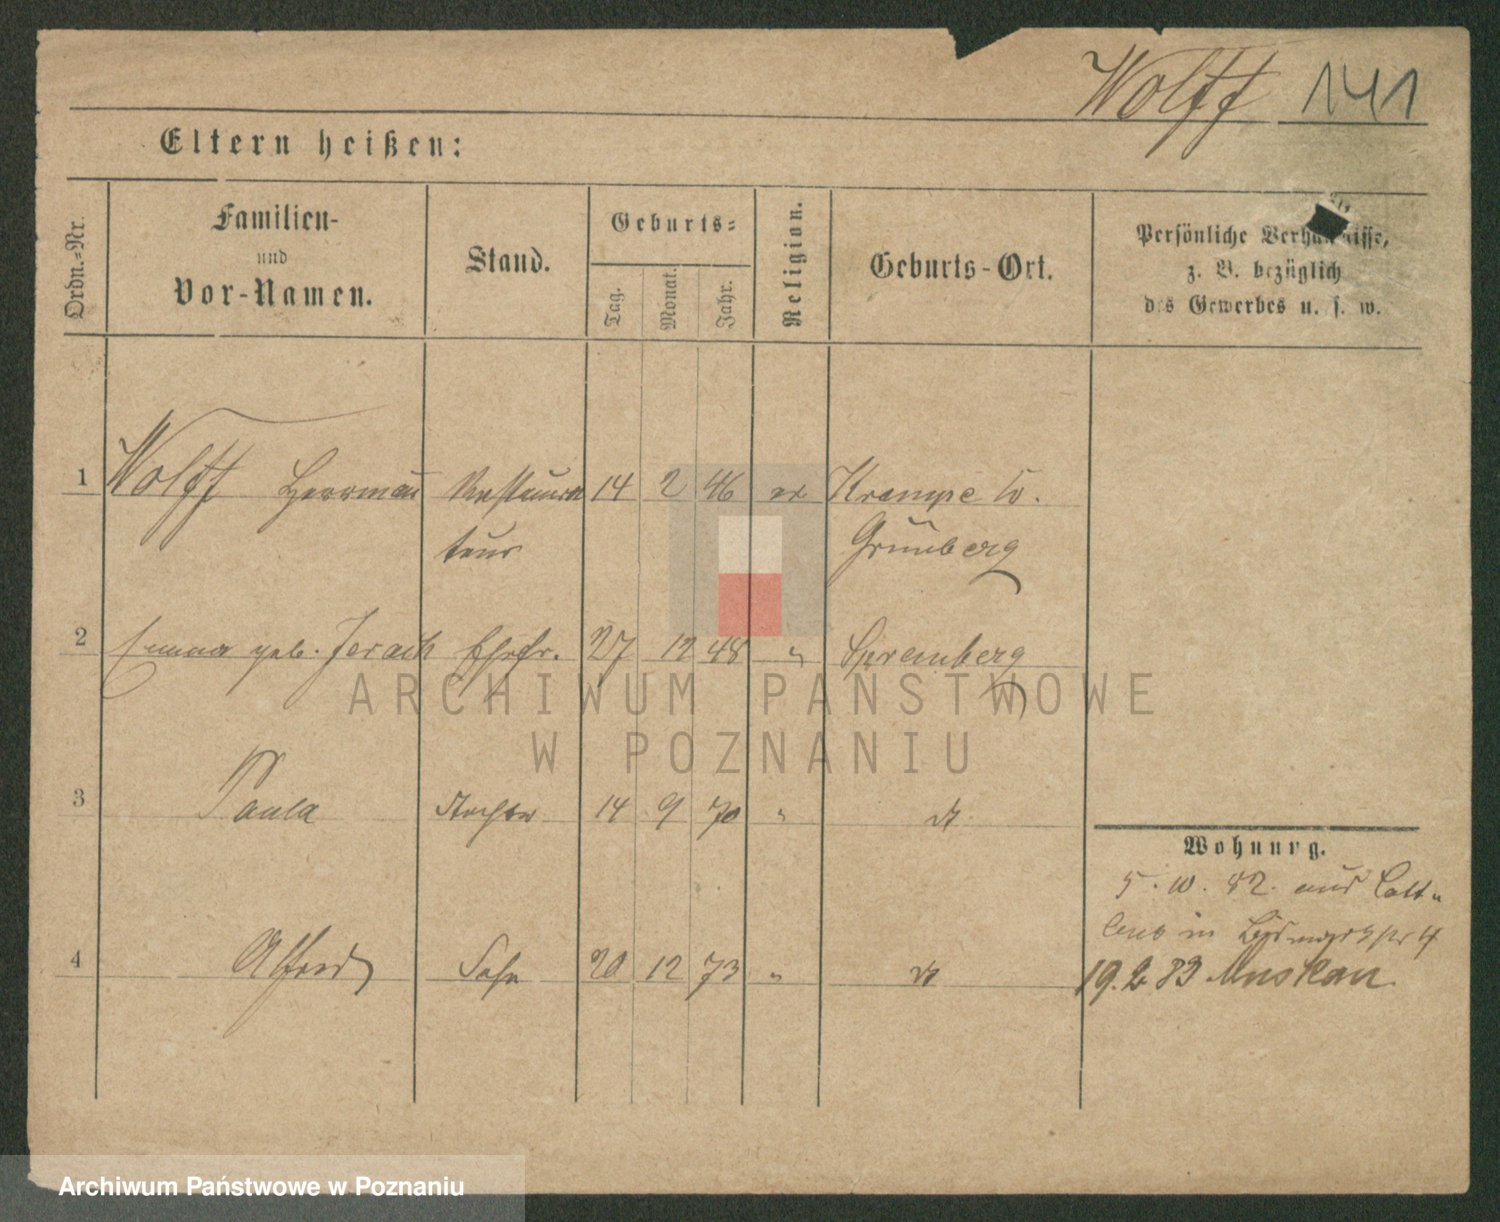 Wolff 141
Eltern heißen:
Ordn.-Nr.
Familien-
und
Vor-Namen.
Stand.
Geburts-
Tag.
Monat.
Jahr.
Religion.
Geburts-Ort.
Persönliche Verhältnisse,
z. B. bezüglich
des Gewerbes u. s. w.
1 Wolff Herrman Restaura 14 2 46 ev Krampe
teur Grünberg
2 Emma geb. Jerach Ehefr. 27 12 48 " Spremberg
3 Paula Tochter 14 9 70 " dt
4 Alfred Sohn 20 12 73 " dt
Wohnung.
5. 10. 82. aus Cott-
bus in Bismarckstr 4
19. 2 83 Muskau
ARCHIWUM PAŃSTWOWE
W POZNANIU
Archiwum Państwowe w Poznaniu